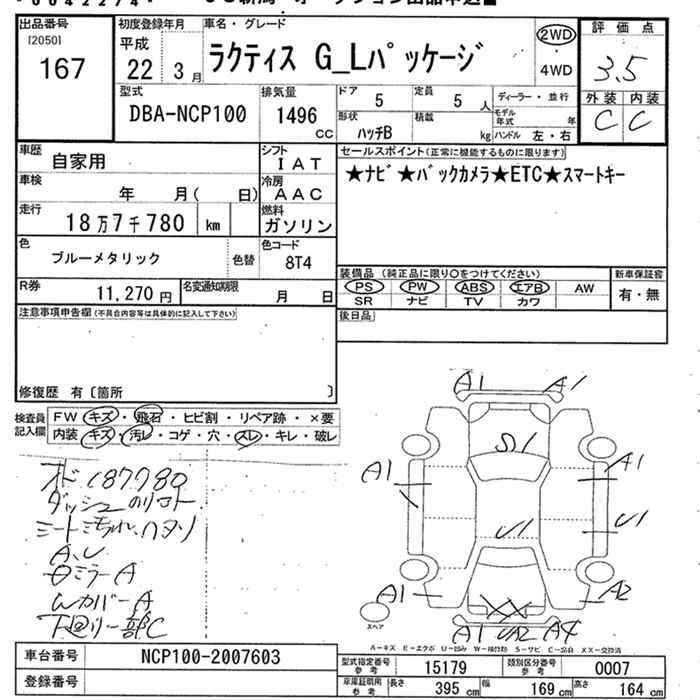 出品番号 初度登録年月 車名・グレード 評価点
[2050] 平成 2WD
167 22 3月 ラクティス G_Lパッケージ 4WD 3.5
型式 排気量 ドア 定員 ディーラー・並行 外装 内装
DBA-NCP100 1496 cc 5 5人 モデル年式 年 C C
形状 積載
ハッチB kg ハンドル 左・右
車歴 シフト セールスポイント(正常に機能するものに限ります)
自家用 IAT ★ナビ★バックカメラ★ETC★スマートキー
車検 冷房
年 月( 日) AAC
走行 燃料
18万7千780 km ガソリン
色 色コード
ブルーメタリック 色替 8T4 装備品(純正品に限り○をつけてください) 新車保証書
R券 名変通知期限 PS PW ABS エアB AW 有・無
11,270円 月 日 SR ナビ TV カワ
注意事項申告欄(不具合内容等は具体的に記入して下さい) 後日品
修復歴 有〔箇所 〕
検査員 FW キズ・飛石・ヒビ割・リペア跡・×要
記入欄 内装 キズ・汚レ・コゲ・穴・スレ・キレ・破レ
A1 A1
S1
A1 A1
U1 U1
A1 A2
XX
A1 UA2 A4
オド187780
A、U
ミラーA
WカバーA
下回り一部C
スペア
A-キズ E-エクボ U-凹み W-補修跡 S-サビ C-腐食 XX-交換済
車台番号 NCP100-2007603 型式指定番号 参考 15179 類別区分番号 参考 0007
登録番号 車庫証明用 参考 長さ 395cm 幅 169cm 高さ 164cm